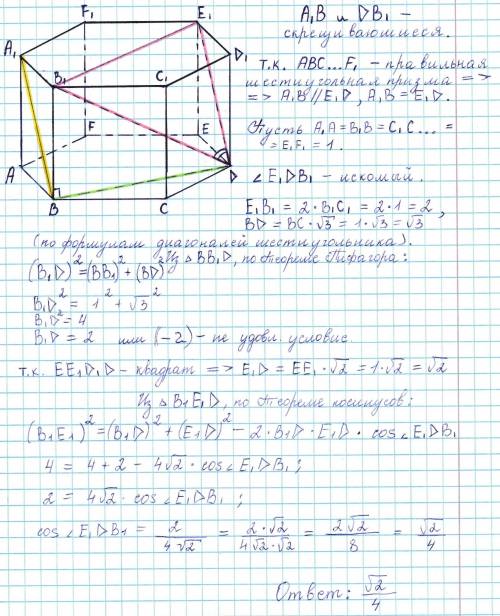 F₁
E₁
A₁
B₁
C₁
D₁
F
E
A
D
B
C
A₁B и DB₁ –
скрещивающиеся.
т.к. ABC...F₁ – правильная
шестиугольная призма =>
=> A₁B // E₁D, A₁B = E₁D.
Пусть A₁A = B₁B = C₁C... =
= E₁F₁ = 1.
∠E₁DB₁ – искомый.
E₁B₁ = 2·B₁C₁ = 2·1 = 2,
BD = BC·√3 = 1·√3 = √3
(по формулам диагоналей шестиугольника).
Из △BB₁D, по теореме Пифагора:
(B₁D)² = (BB₁)² + (BD)²
B₁D² = 1² + √3²
B₁D² = 4
B₁D = 2 или (-2) – не удовл. условие.
т.к. EE₁D₁D – квадрат => E₁D = EE₁·√2 = 1·√2 = √2
Из △B₁E₁D, по теореме косинусов:
(B₁E₁)² = (B₁D)² + (E₁D)² – 2·B₁D·E₁D·cos∠E₁DB₁
4 = 4 + 2 – 4√2·cos∠E₁DB₁;
2 = 4√2·cos∠E₁DB₁;
cos∠E₁DB₁ = 2/4√2 = 2·√2/4√2·√2 = 2√2/8 = √2/4
Ответ: √2/4